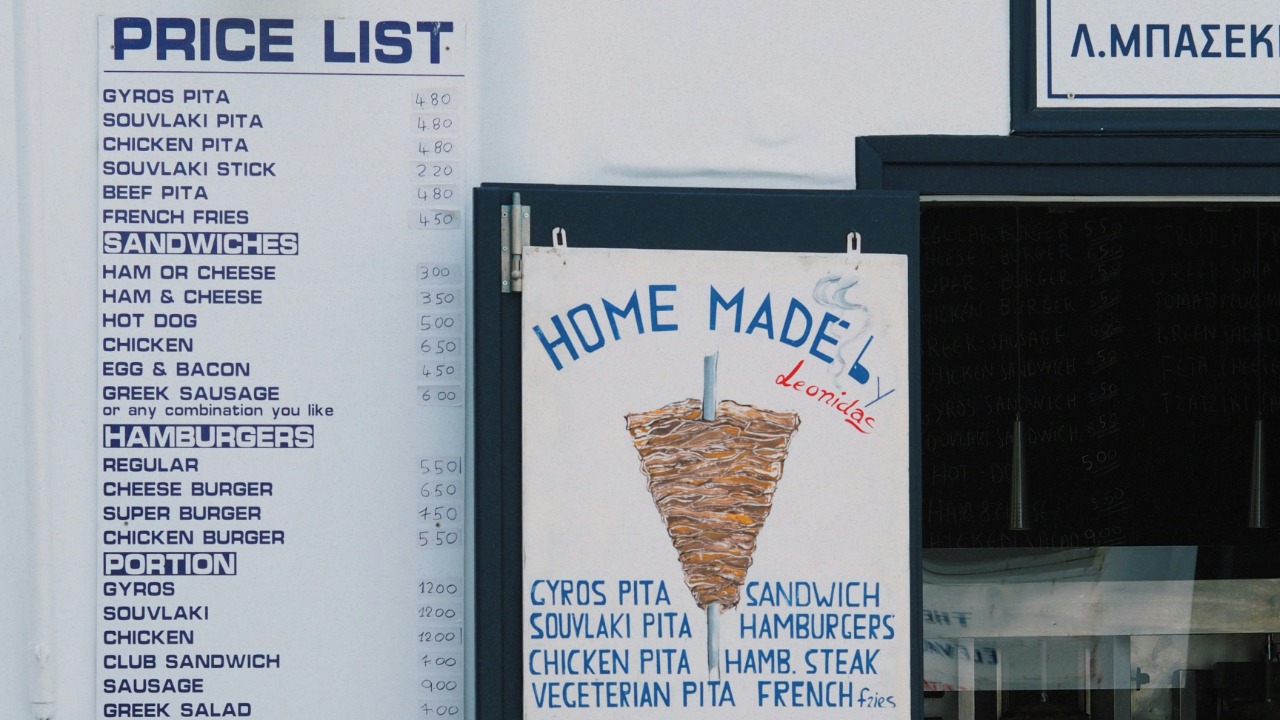 PRICE LIST
GYROS PITA 4 80
SOUVLAKI PITA 4 80
CHICKEN PITA 4 80
SOUVLAKI STICK 2 20
BEEF PITA 4 80
FRENCH FRIES 4 50
SANDWICHES
HAM OR CHEESE 3 00
HAM & CHEESE 3 50
HOT DOG 5 00
CHICKEN 6 50
EGG & BACON 4 50
GREEK SAUSAGE 6 00
or any combination you like
HAMBURGERS
REGULAR 5 50
CHEESE BURGER 6 50
SUPER BURGER 7 50
CHICKEN BURGER 5 50
PORTION
GYROS 12 00
SOUVLAKI 12 00
CHICKEN 12 00
CLUB SANDWICH 7 00
SAUSAGE 9 00
GREEK SALAD 7 00
HOME MADE by
Leonidas
GYROS PITA SANDWICH
SOUVLAKI PITA HAMBURGERS
CHICKEN PITA HAMB. STEAK
VEGETERIAN PITA FRENCH fries
Λ.ΜΠΑΣΕΚ
BURGER
BURGER
SAUSAGE
SANDWICH
SANDWICH
5,00
THE